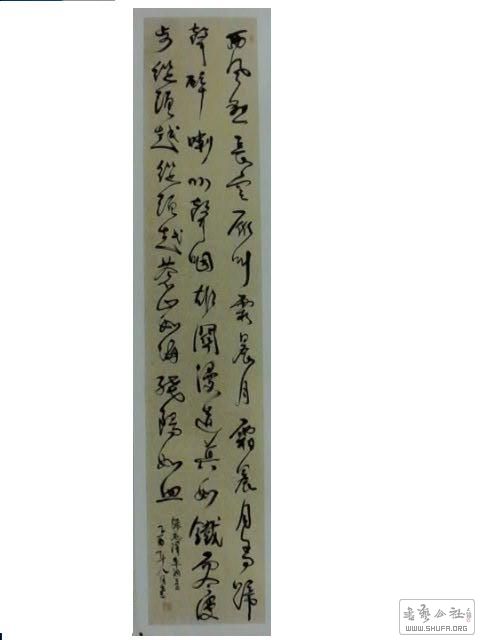 西風烈長空雁叫霜晨月霜晨月馬蹄
聲碎喇叭聲咽雄關漫道真如鐵而今邁
步從頭越從頭越蒼山如海殘陽如血
錄毛澤東詞
乙酉年八月
書藝公社
WWW.SHUFA.ORG